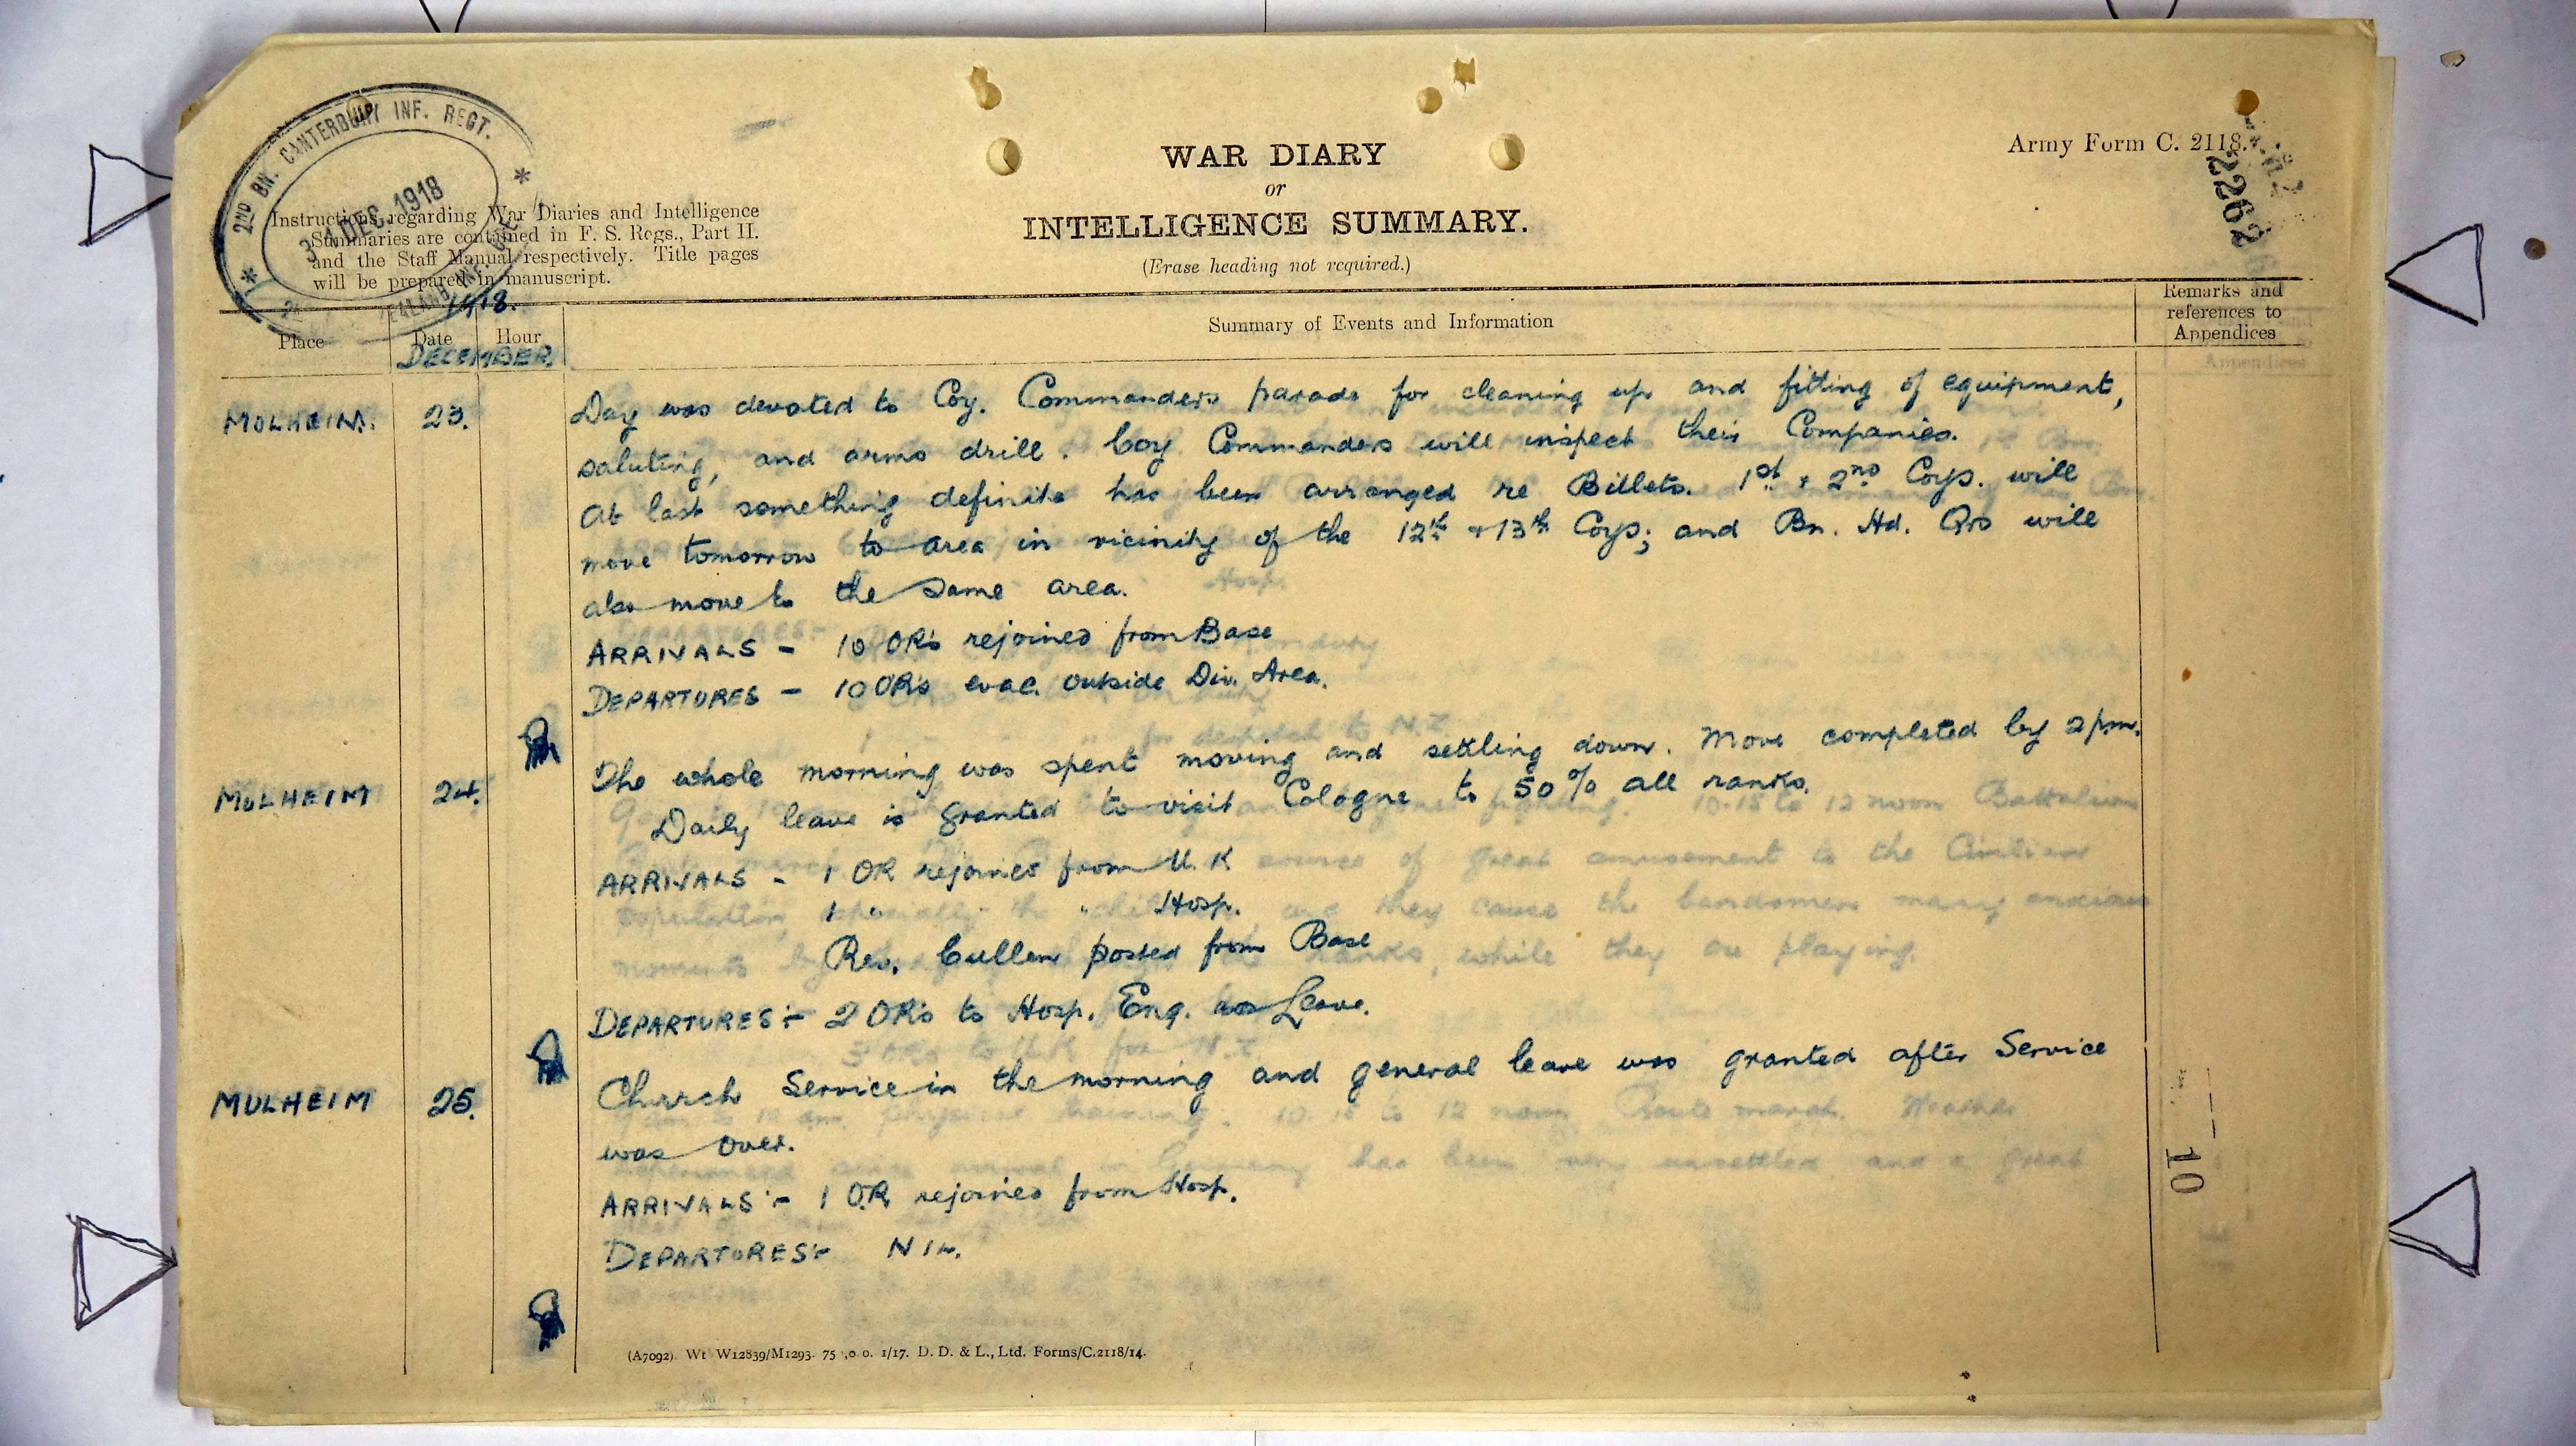 2ND BN. CANTERBURY INF. REGT.
31 DEC. 1918
Instructions regarding War Diaries and Intelligence
Summaries are contained in F. S. Regs., Part II.
and the Staff Manual respectively. Title pages
will be prepared in manuscript.
WAR DIARY
or
INTELLIGENCE SUMMARY.
(Erase heading not required.)
Army Form C. 2118.
2262
1918.
Place
Date
Hour
DECEMBER.
Summary of Events and Information
Remarks and
references to
Appendices
MULHEIM. 23. Day was devoted to Coy. Commanders parade for cleaning up and fitting of equipment,
saluting, and arms drill. Coy Commanders will inspect their Companies.
At last something definite has been arranged re Billets. 1st + 2nd Coys. will
move tomorrow to area in vicinity of the 12th + 13th Coys; and Bn. Hd. Qrs will
also move to the same area.
ARRIVALS - 10 ORs rejoined from Base
DEPARTURES - 10 ORs evac. outside Div. Area.
MULHEIM 24. The whole morning was spent moving and settling down. Move completed by 2pm.
Daily leave is granted to visit Cologne to 50% all ranks.
ARRIVALS - 1 OR rejoined from U.K
1 " Hosp.
Rev. Cullen posted from Base
DEPARTURES:- 2 ORs to Hosp. Eng. Leave.
MULHEIM 25. Church Service in the morning and general leave was granted after Service
was over.
ARRIVALS:- 1 OR rejoined from Hosp.
DEPARTURES:- NIL.
10
(A7092) Wt W12839/M1293. 75 ,0 0. 1/17. D. D. & L., Ltd. Forms/C.2118/14.